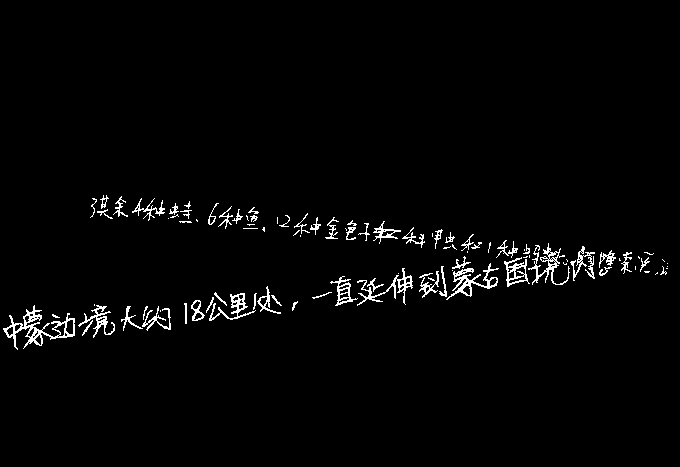 其余4种蛙、6种鱼、12种金龟子科甲虫和1种
中蒙边境大约18公里处，一直延伸到蒙古国境内